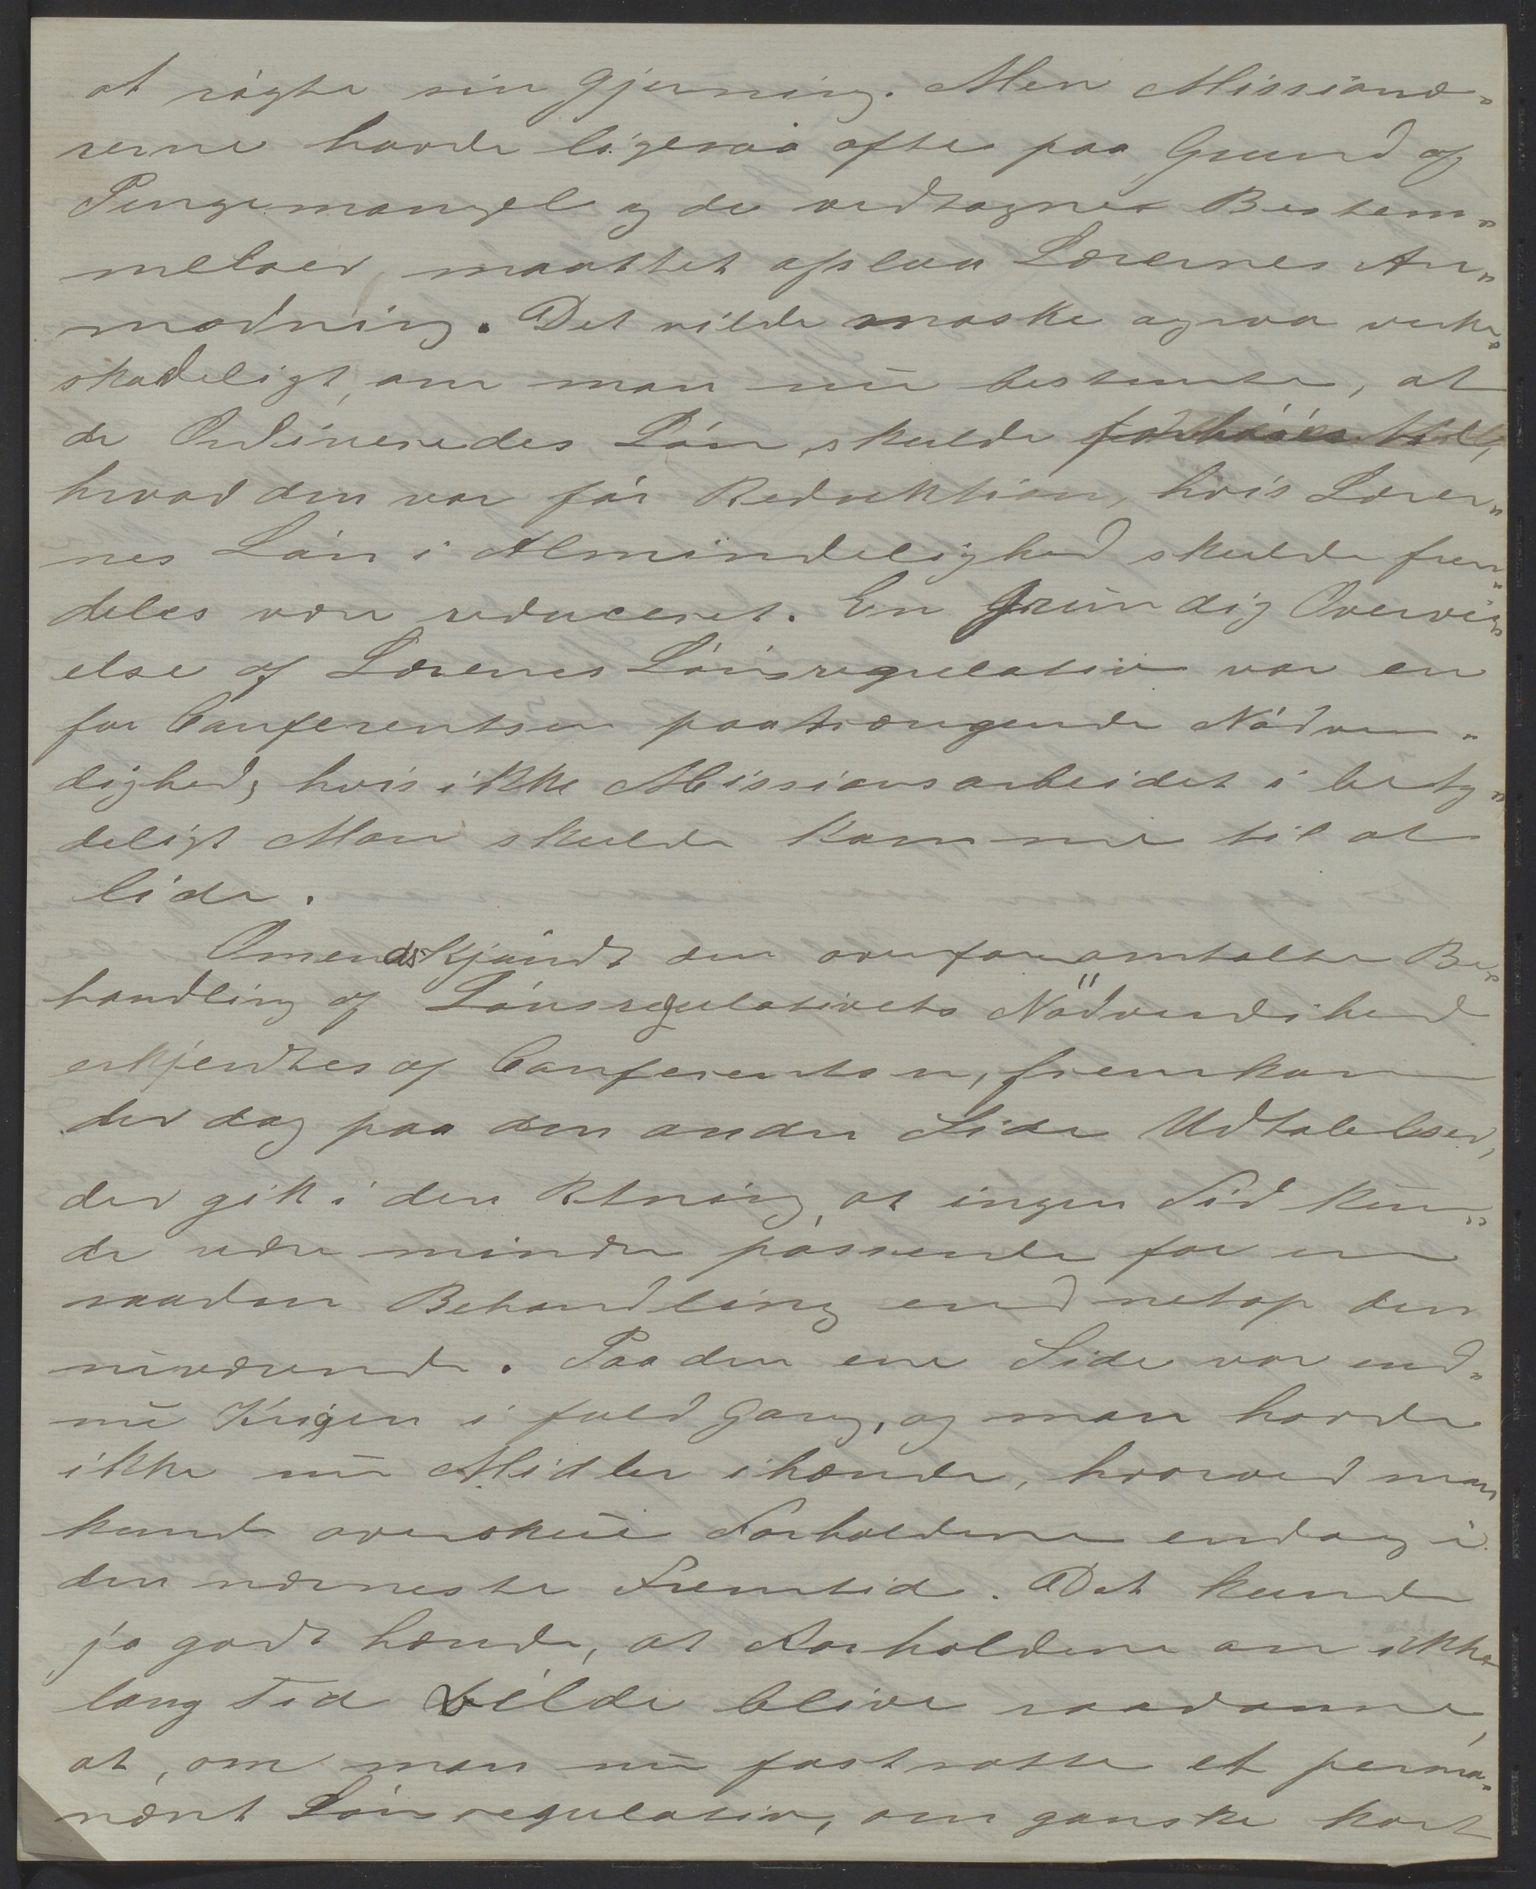 at røgte sin Gjerning. Men Missionæ-
rerne havde ligesaa ofte paa Grund af
Pengemangel og de vedtagne Bestem-
melser, maattet afslaa Lærernes An-
modning. Det vilde maaske ogsaa virke
skadeligt, om man nu bestemte, at
de Ordineredes Løn skulde forhøies til,
hvad den var før Reduktion, hvis Lærer-
nes Løn i Almindelighed skulde frem-
deles være reduceret. En Grundig Overvei-
else af Lærernes Lønsregulativ var en
for Conferentsen paatrængende Nødven-
dighed, hvis ikke Missionsarbeidet i bety-
deligt Mon skulde komme til at
lide.
Omendskjøndt den ovenforomtalte Be-
handling af Lønsregulativets Nödvendihed
erkjendtes af Conferentsen, fremkom
der dog paa den anden Side Udtalelser,
der gik i den Retning, at ingen Tid kun-
de være mindre passende for en
saadan Behandling end netop den
nuværende. Paa den ene Side var end-
nu Krigen i fuld Gang, og man havde
ikke nu Midler ihænde, hvorved man
kunde overskue Forholdene endog i
den nærmeste Fremtid. Det kunde
jo godt hænde, at Forholdene om ikke
lang Tid vilde blive saadanne,
at, om man nu fastsatte et perma-
nænt Lønsregulativ, om ganske kort